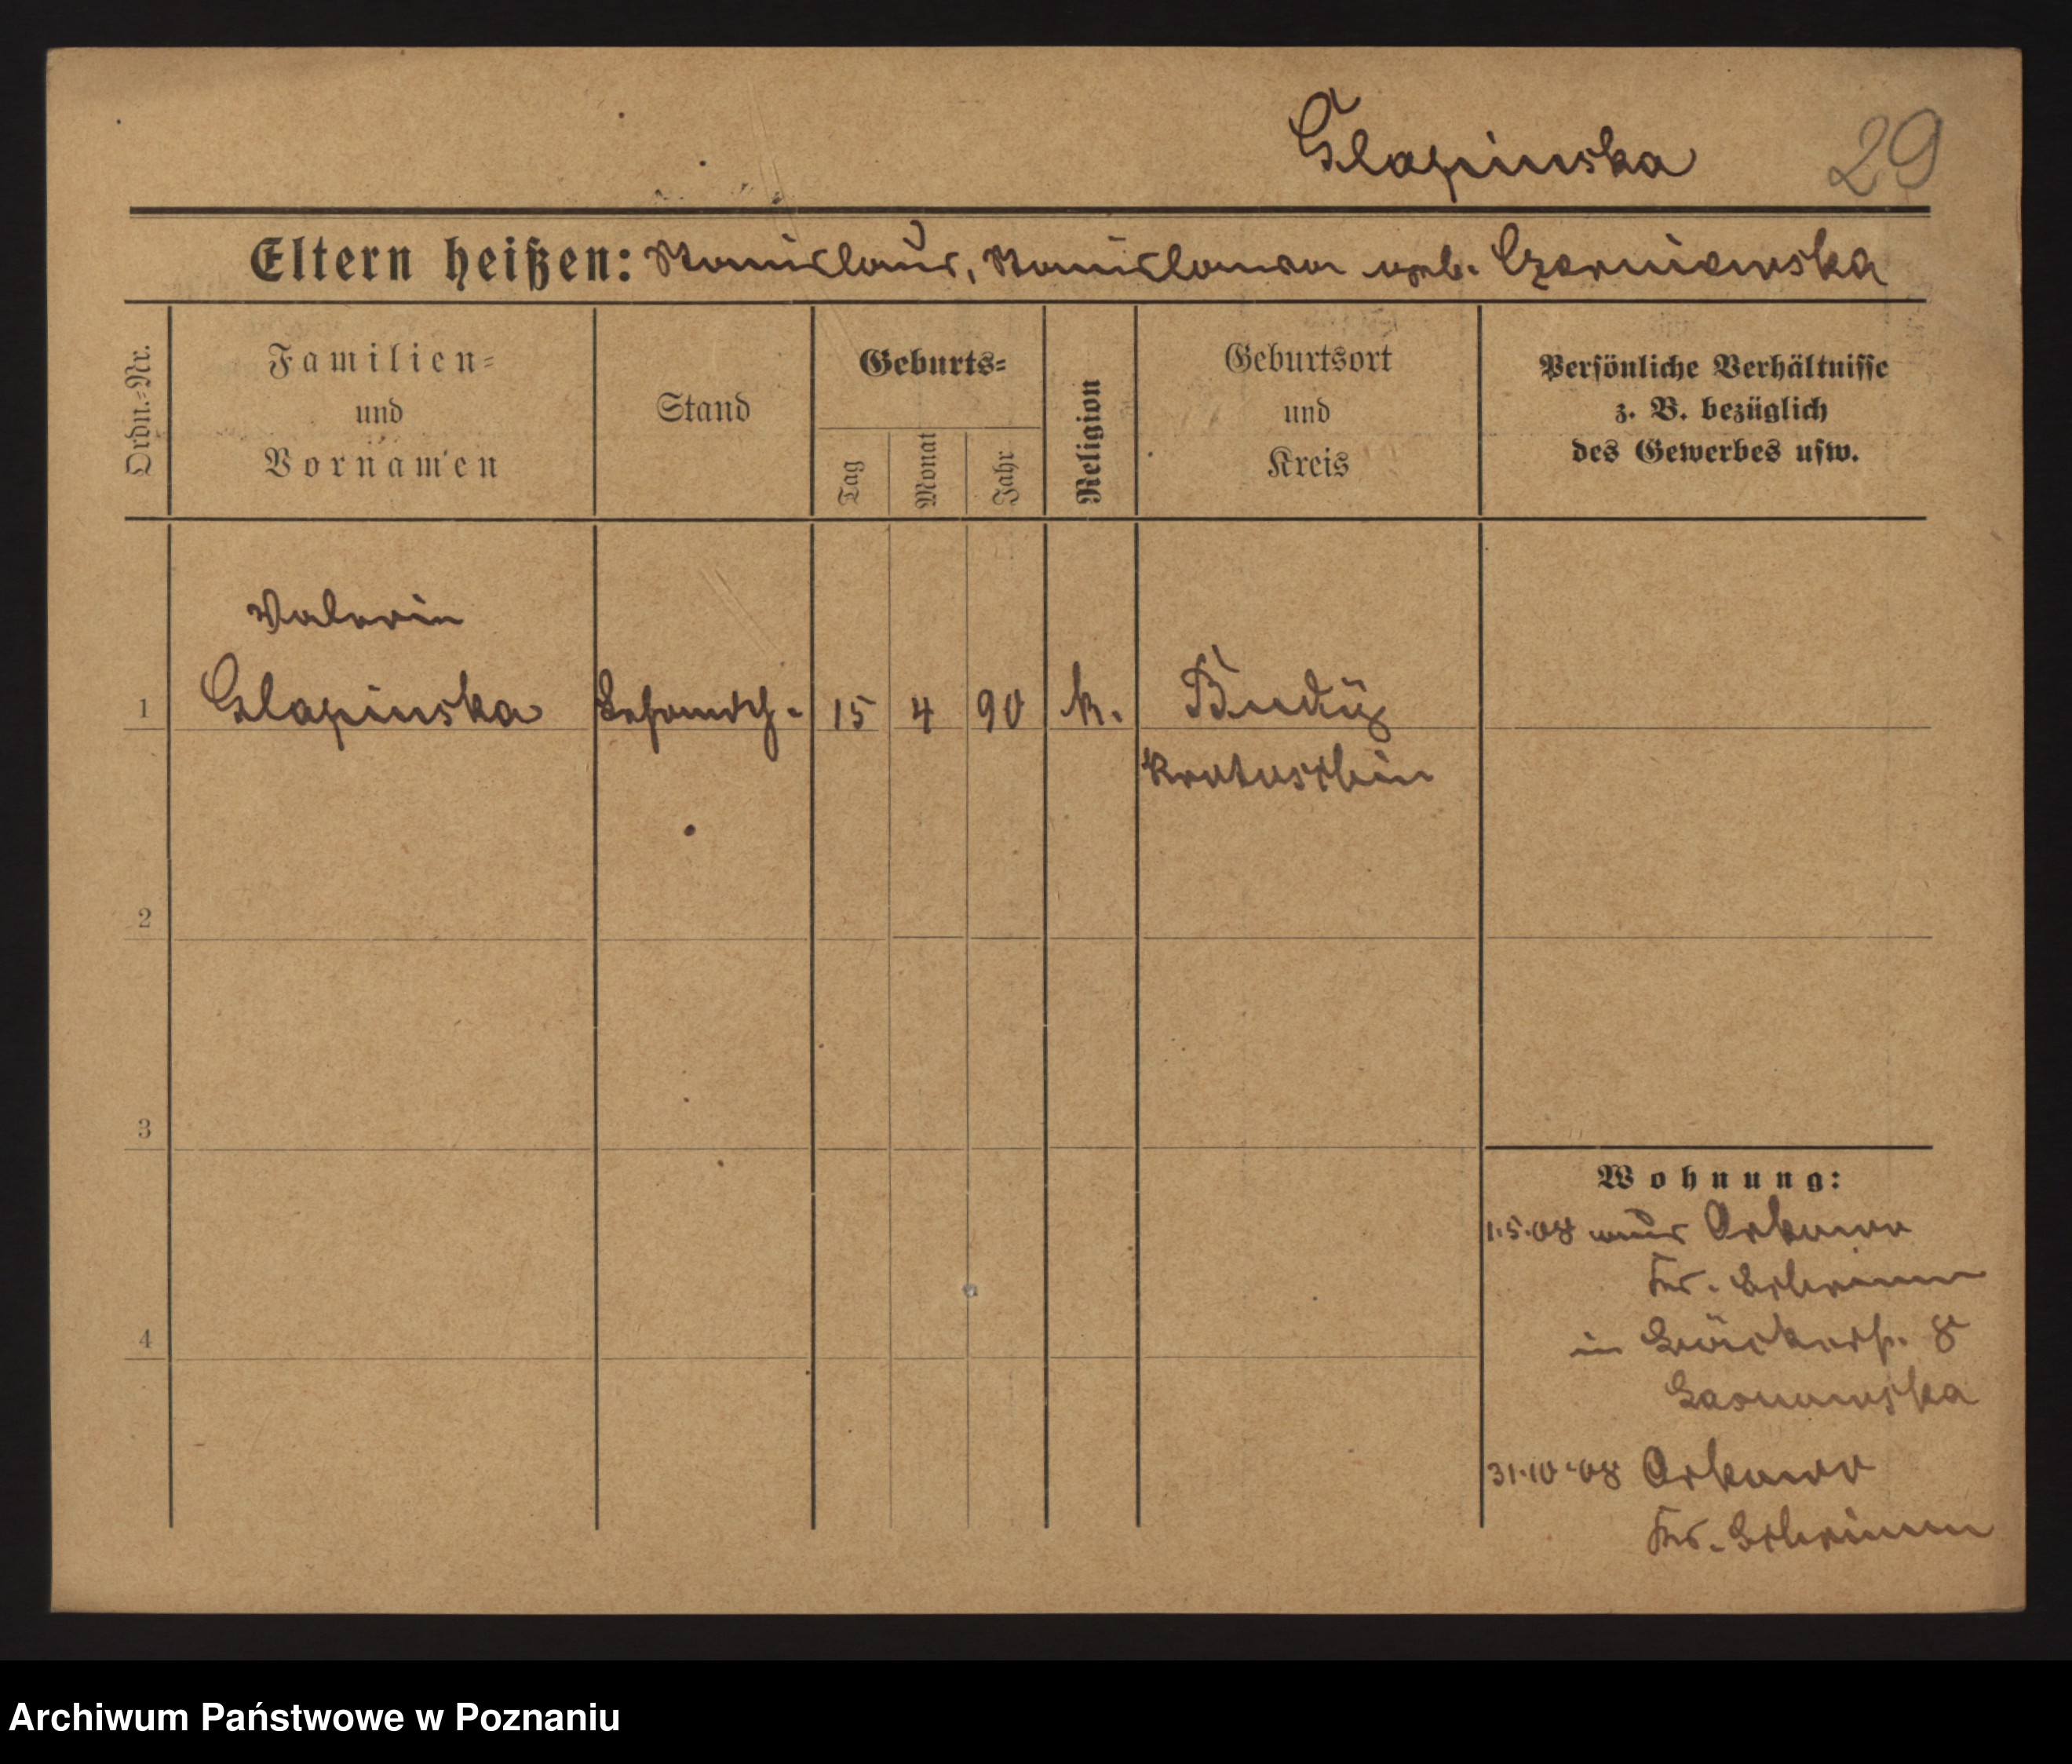 Glapinska 29
Eltern heißen: Stanislaus, Stanislawa geb. Czerniewska
Ordn.-Nr.
Familien-
und
Vornamen
Stand
Geburts-
Tag
Monat
Jahr
Religion
Geburtsort
und
Kreis
Persönliche Verhältnisse
z. B. bezüglich
des Gewerbes usw.
Valerie
1 Glapinska 15 4 90 k.
Krotoschin
2
3
4
Wohnung:
1.5.08 aus Orkowo
Kr. Schrimm
in 8
31.10.08 Orkowo
Kr. Schrimm
Archiwum Państwowe w Poznaniu